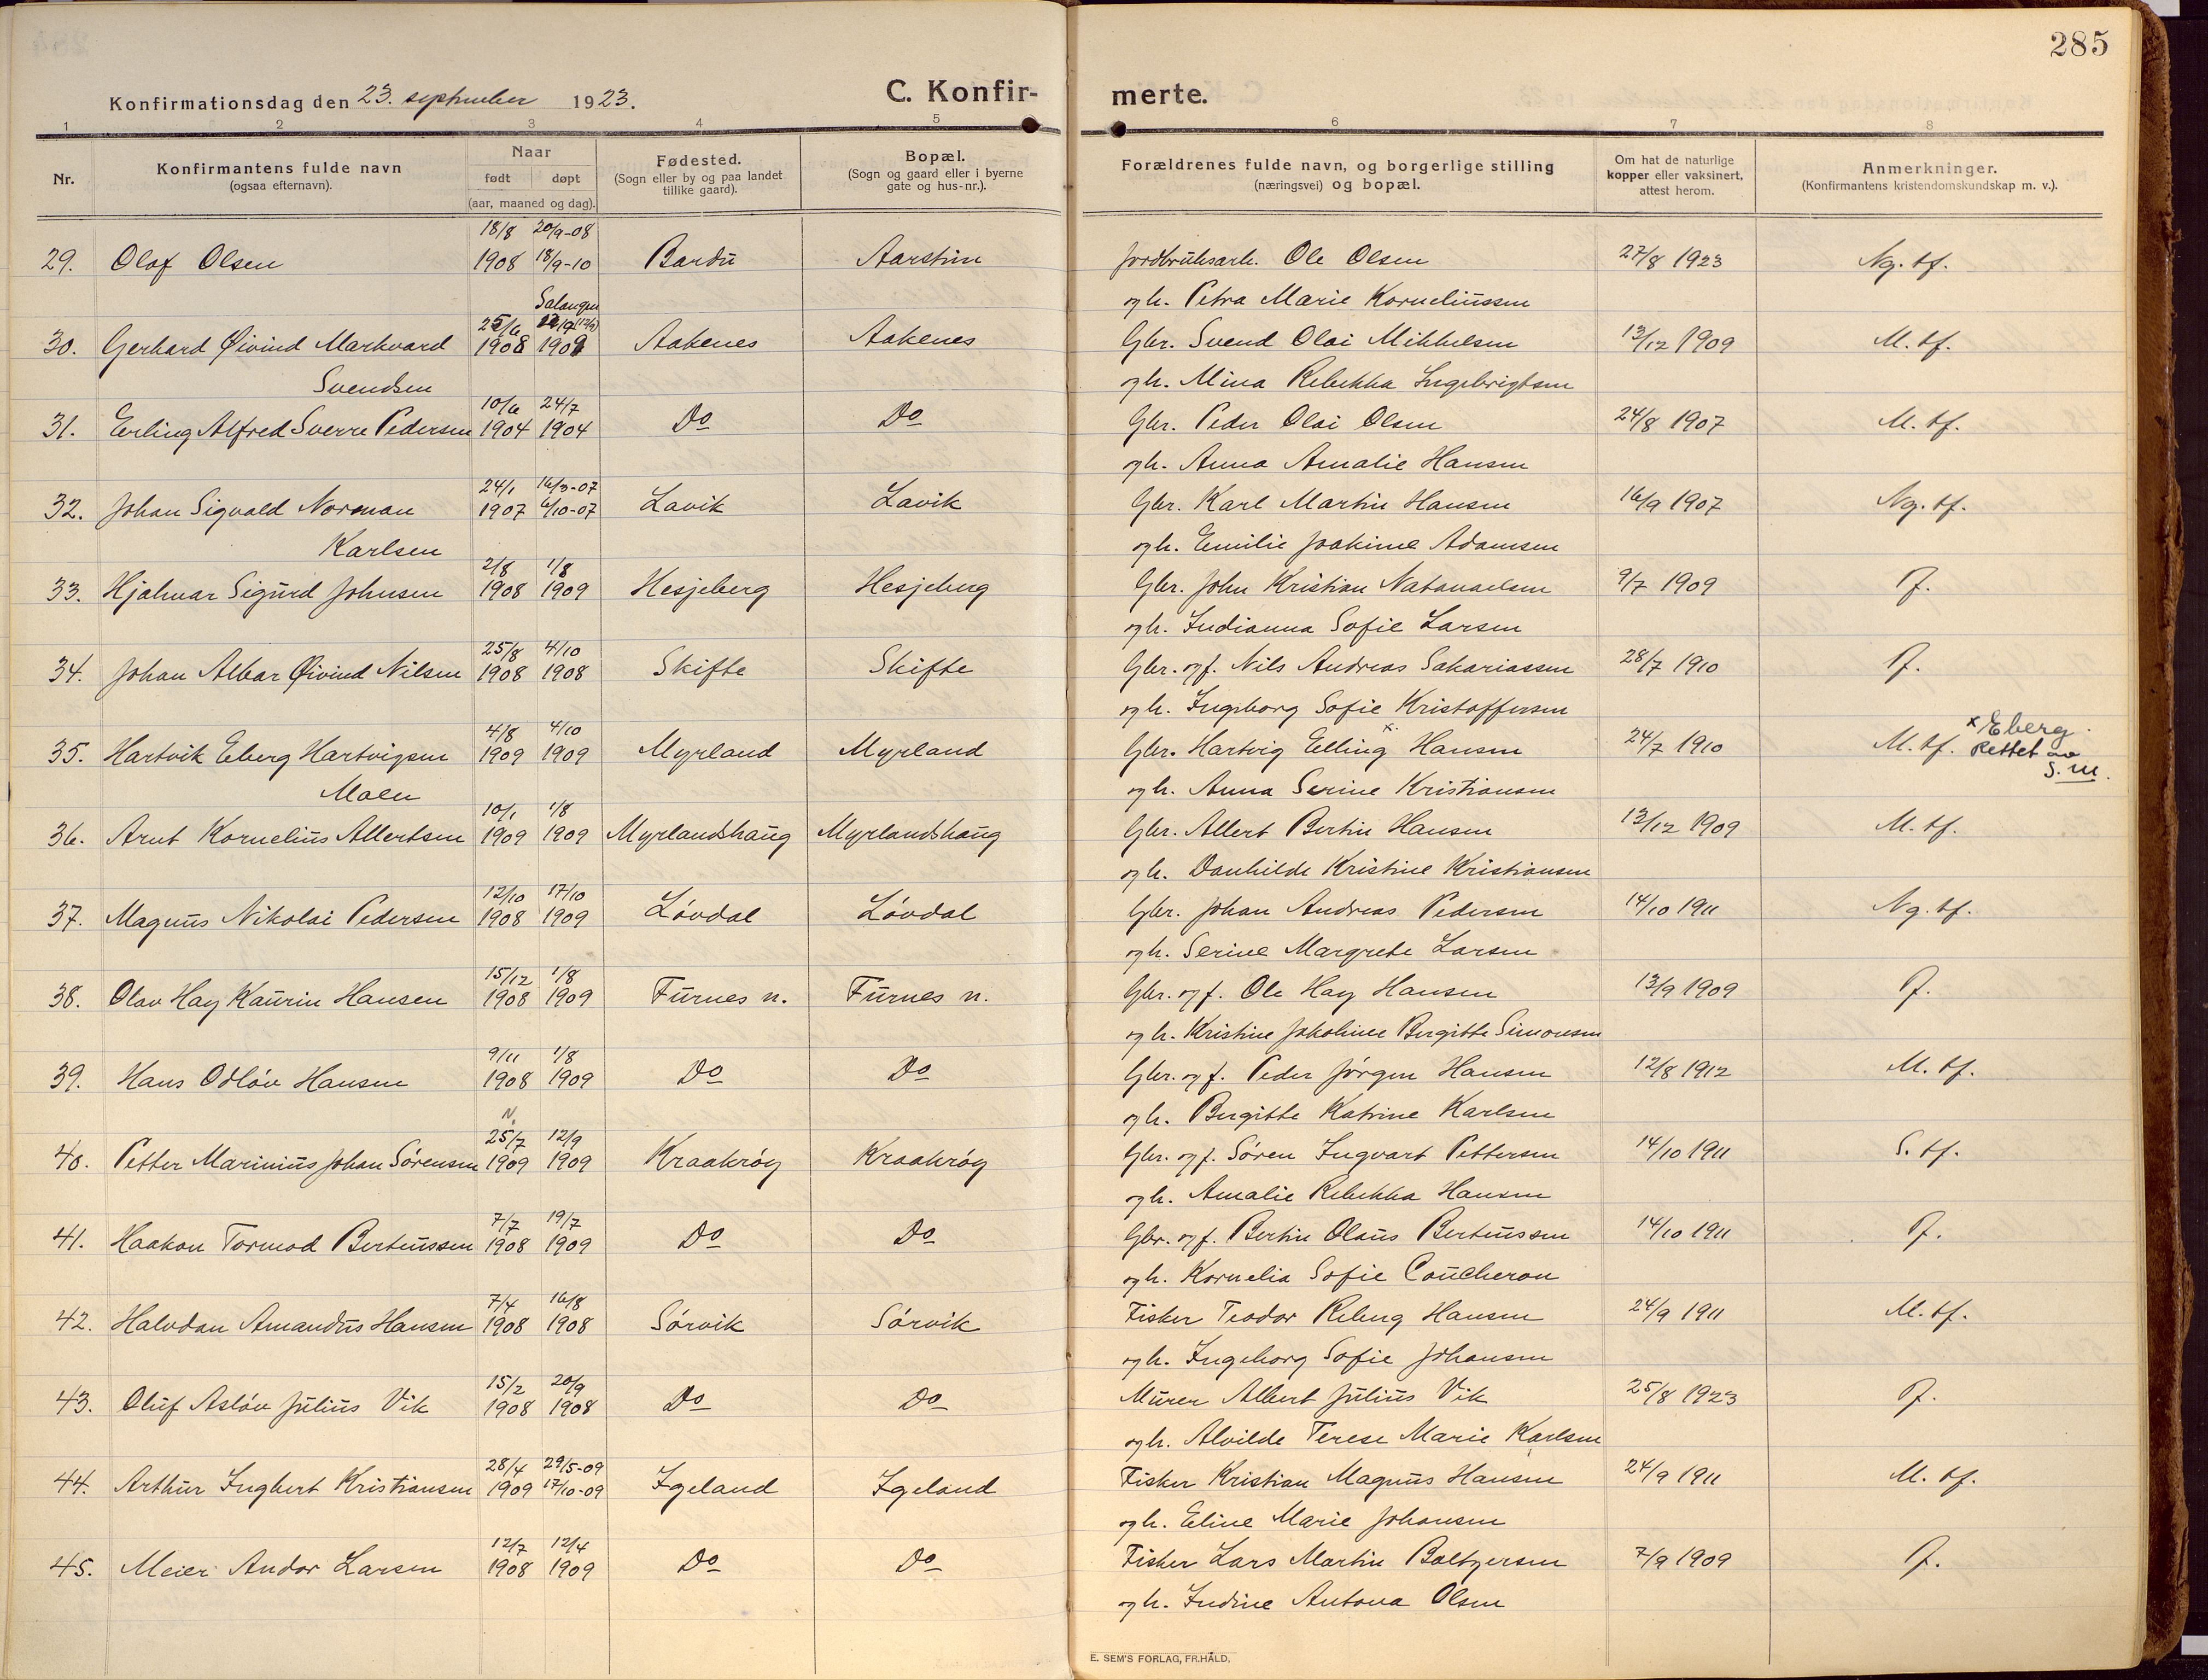 285
Konfirmationsdag den 23. september 1923.
C. Konfir-
merte.
1 2 3 4 5 6 7 8
Nr.
Konfirmantens fulde navn
(ogsaa efternavn).
Naar
født døpt
(aar, maaned og dag).
Fødested.
(Sogn eller by og paa landet
tillike gaard).
Bopæl.
(Sogn og gaard eller i byerne
gate og hus-nr.).
Forældrenes fulde navn, og borgerlige stilling
(næringsvei) og bopæl.
Om hat de naturlige
kopper eller vaksinert,
attest herom.
Anmerkninger.
(Konfirmantens kristendomskundskap m. v.).
18/8 20/9-08
29. Olaf Olsen 1908 18/9-10 Bardu Aarstein Jordbruksarb. Ole Olsen 27/8 1923 Ng. tf.
Salangen
og h. Petra Marie Korneliussen
25/6
30. Gerhard Øivind Markvard 1908 1909 Aakenes Aakenes Gbr. Svend Olai Mikkelsen 13/12 1909 M. tf.
Svendsen og h. Mina Rebekka Ingebrigtsen
10/6 24/7
31. Erling Alfred Sverre Pedersen 1904 1904 Do Do Gbr. Peder Olai Olsen 24/8 1907 M. tf.
og h. Anna Amalie Hansen
24/1 16/3-07
32. Johan Sigvald Norman 1907 6/10-07 Lavik Lavik Gbr. Karl Martin Hansen 16/9 1907 Ng. tf.
Karlsen og h. Emilie Joakime Adamsen
2/8 1/8
33. Hjalmar Sigurd Johnsen 1908 1909 Hesjeberg Hesjeberg Gbr. John Kristian Natanaelsen 9/7 1909 J.
og h. Indianna Sofie Larsen
25/8 4/10
34. Johan Albar Øivind Nilsen 1908 1908 Skifte Skifte Gbr. og f. Nils Andreas Sakariassen 28/7 1910 J.
og h. Ingeborg Sofie Kristoffersen
4/8 4/10 x. x Eberg.
35. Hartvik Eberg Hartvigsen 1909 1909 Myrland Myrland Gbr. Hartvig Elling Hansen 24/7 1910 M. tf. Rettet av
S. M.
Moen og h. Anna Serine Kristiansen
10/1 1/8
36. Arnt Kornelius Allertsen 1909 1909 Myrlandshaug Myrlandshaug Gbr. Allert Bertin Hansen 13/12 1909 M. tf.
og h. Danhilde Kristine Kristiansen
12/10 17/10
37. Magnus Nikolai Pedersen 1908 1909 Løvdal Løvdal Gbr. Johan Andreas Pedersen 14/10 1911 Ng. tf.
og h. Serine Margrete Larsen
15/12 1/8
38. Olav Hay Kaurin Hansen 1908 1909 Furnes n. Furnes n. Gbr. og f. Ole Hay Hansen 13/9 1909 J.
og h. Kristine Jakobine Birgitte Simonsen
9/11 1/8
39. Hans Odløv Hansen 1908 1909 Do Do Gbr. og f. Peder Jørgen Hansen 12/8 1912 M. tf.
og h. Birgitte Katrine Karlsen
N.
25/7 12/9
40. Petter Marinius Johan Sørensen 1909 1909 Kraakrøy Kraakrøy Gbr. og f. Søren Ingvart Pettersen 14/10 1911 S. tf.
og h. Amalie Rebekka Hansen
7/7 19/7
41. Haakon Tormod Berteussen 1908 1909 Do Do Gbr. og f. Bertin Olaus Berteussen 14/10 1911 J.
og h. Kornelia Sofie Coucheron
7/4 16/8
42. Halvdan Amandus Hansen 1908 1908 Sørvik Sørvik Fisker Teodor Reberg Hansen 24/9 1911 M. tf.
og h. Ingeborg Sofie Johansen
15/2 20/9
43. Oluf Asløv Julius Vik 1908 1908 Do Do Murer Albert Julius Vik 25/8 1923 J.
og h. Alvilde Terese Marie Karlsen
28/4 29/5-09
44. Arthur Ingbert Kristiansen 1909 17/10-09 Igeland Igeland Fisker Kristian Magnus Hansen 24/9 1911 M. tf.
og h. Eline Marie Johansen
12/7 12/4
45. Meier Andor Larsen 1908 1909 Do Do Fisker Lars Martin Baltzersen 7/9 1909 J.
og h. Indine Antona Olsen
E. SEM'S FORLAG, FR.HALD,